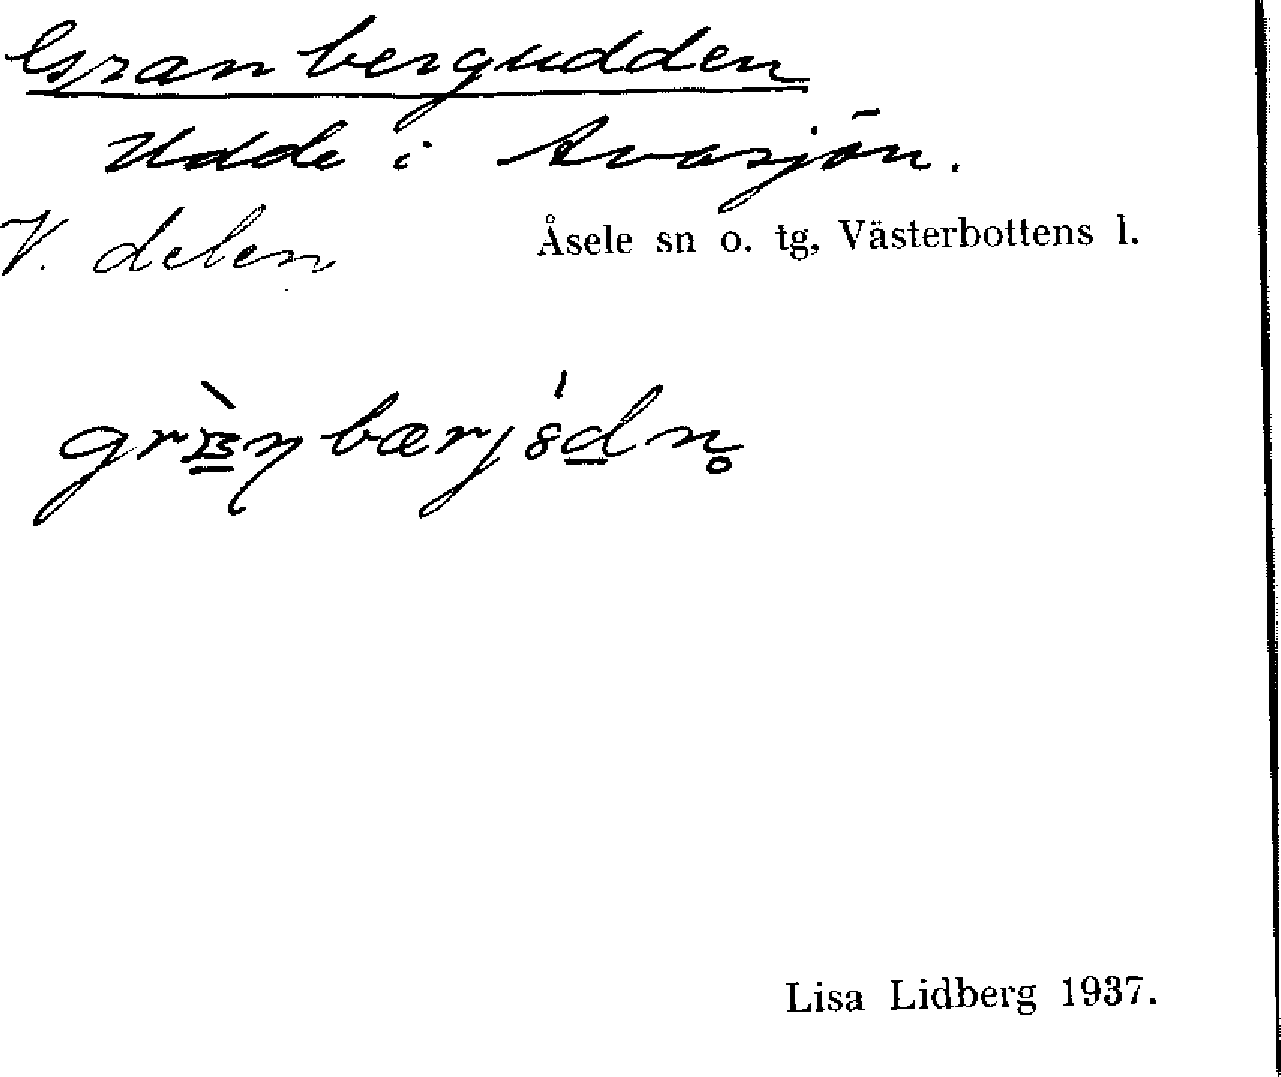 Granbergudden
Udde i Avasjön.
V. delen
Åsele sn o. tg, Västerbottens l.
Lisa Lidberg 1937.